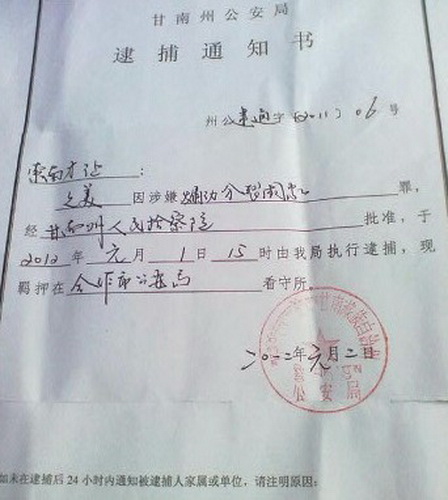 甘南州公安局
逮捕通知书
州公逮通字〔2011〕06号
索南才让：
之美 因涉嫌煽动分裂国家 罪，
经甘南州人民检察院 批准，于
2012年元月1日15时由我局执行逮捕，现
羁押在合作市公安局 看守所。
二〇一二年元月二日
公安局
如未在逮捕后24小时内通知被逮捕人家属或单位，请注明原因：